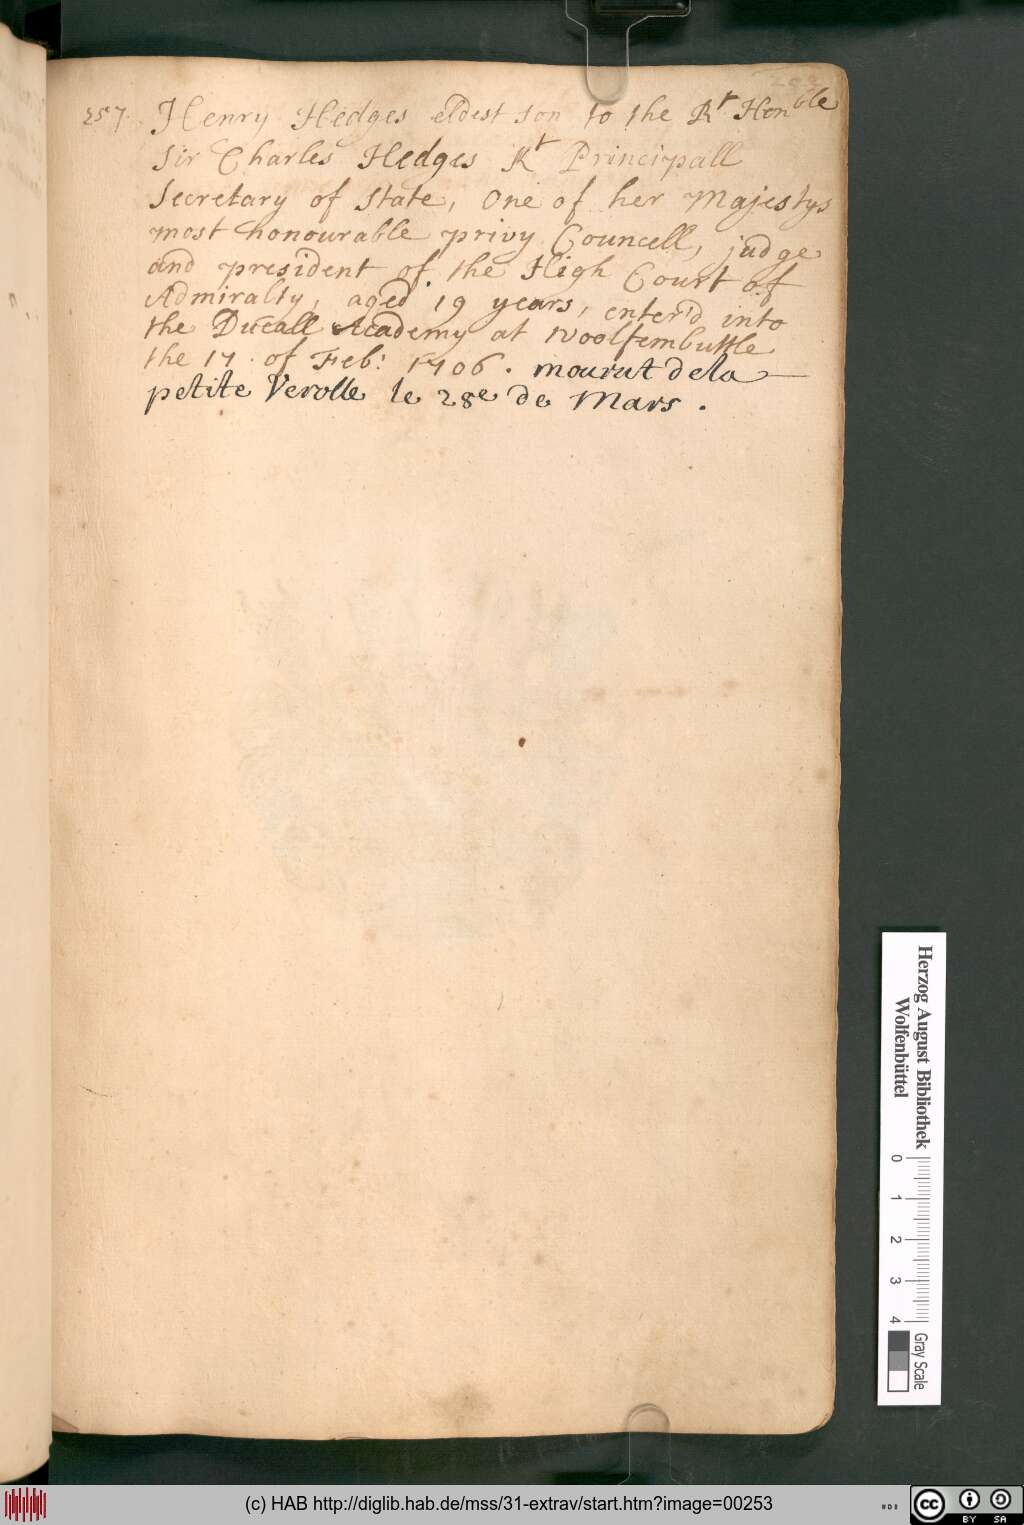 257. Henry Hedges eldest son to the Rt Honble
Sir Charles Hedges Kt Principall
Secretary of State, One of her Majestys
most honourable privy Councell, judge
and president of the High Court of
Admiralty, aged 19 years, enter'd into
the Ducall Academy at Woolfembuttle
the 17. of Feb: 1706. mourut de la
petite Verolle le 28e de Mars.
Herzog August Bibliothek
Wolfenbüttel
0 1 2 3 4
Gray Scale
(c) HAB http://diglib.hab.de/mss/31-extrav/start.htm?image=00253
cc BY SA